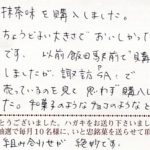 抹茶味を購入しました。
ちょうどよい大きさでおいしかった
です。以前飯田駅前で購
しましたが、諏訪SA:で
売っているのを見て思わず購入し
た。和菓子のようなチョコのようなと
とうございました。ハガキをお送り下さいまし
抽選で毎月10名様に、いと忠銘菓を送らせて頂
組み合わせが絶妙です。